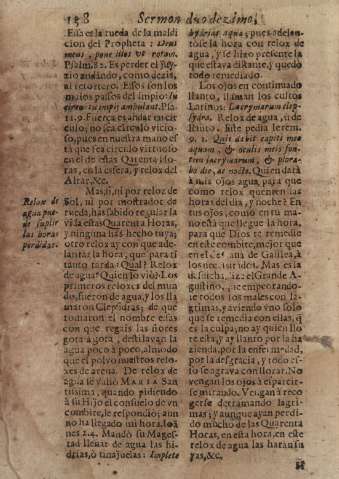 138 Sermon duodezimo,
Essa es la rueda de la maldi
cion del Propheta: Deus
meus, pone illos ut rotam.
Psalm. 82. Es perder el juy-
zio andando, como dezis,
al retortero. Essos son los
malos passos del impio: In
circuitu impij ambulant. Psa.
11. 9. Fuerça es andar en cir
culo; no sea circulo vicio-
so, pues en nuestra mano es
tà que sea circulo virtuoso
en el de estas Quarenta Ho-
ras, en la esfera, y relox del
Altar, &c.
Mas si, ni por relox de
Sol, ni por mostrador de
rueda, has sabido regular la
vista estas Quarenta Horas,
y ninguna has hecho tuya;
otro relox ay con que ade-
lantar la hora, que para ti
tanto tarda: Qual? Relox
de agua: Quien vió? Los
primeros reloxes del mun
do, fueron de agua, y los lla
maron Clepsidras; de que
tomaron el nombre essas
con que regais las flores
gota à gota, destilavan la
agua poco à poco, al modo
que el polvo nuestros relo-
xes de arena. De relox de
agua se valió MARIA San-
tissima, quando pidiendo
à su Hijo el consuelo de vn
combite, le respondió; aun
no ha llegado mi hora, Ioan
nes 2. 4. Mandó su Mages-
tad llenar de agua las hi-
drias, ò tinajuelas: Implete
Relox de
agua pue-
de suplir
las horas
perdidas.
hydrias aqua; pues adelan-
tose la hora con relox de
agua, y se hizo presente la
que estava distante, y quedó
todo remediado.
Los ojos en continuado
llanto, llaman los cultos
Latinos: Lacrymarum clep-
sydra. Relox de agua, ù de
llanto. Este pedia Ierem.
9. 1. Quis dabit capiti meo
aquam, & oculis meis fon-
tem lacrymarum, & plora-
bo die, ac nocte. Quien darà
à mis ojos agua, para que
como relox quenten las
horas del dia, y noche? En
tus ojos, como en tu ma-
no està que llegue la hora,
para que Dios te remedie
en este combite, mejor que
en el de Canà de Galilea, à
los necessitados. Mas es la
disdicha, dize el Grande A-
gustino, que emporcando-
se todos los males con la-
grimas, aviendo vno solo
que se remedia con ellas, q̃
es la culpa, no ay quien llo
re esta, y ay llanto por la ha
zienda, por la enfermedad,
por la desgracia, y todo es-
so se agrava con llorar. No
vengan los ojos à esparcir-
se mirando. Vengan à reco
gerse derramando lagri-
mas; y aunque ayan perdi-
do mucho de las Quarenta
Horas, en esta hora, en este
relox de agua las haràn su
yas, &c.